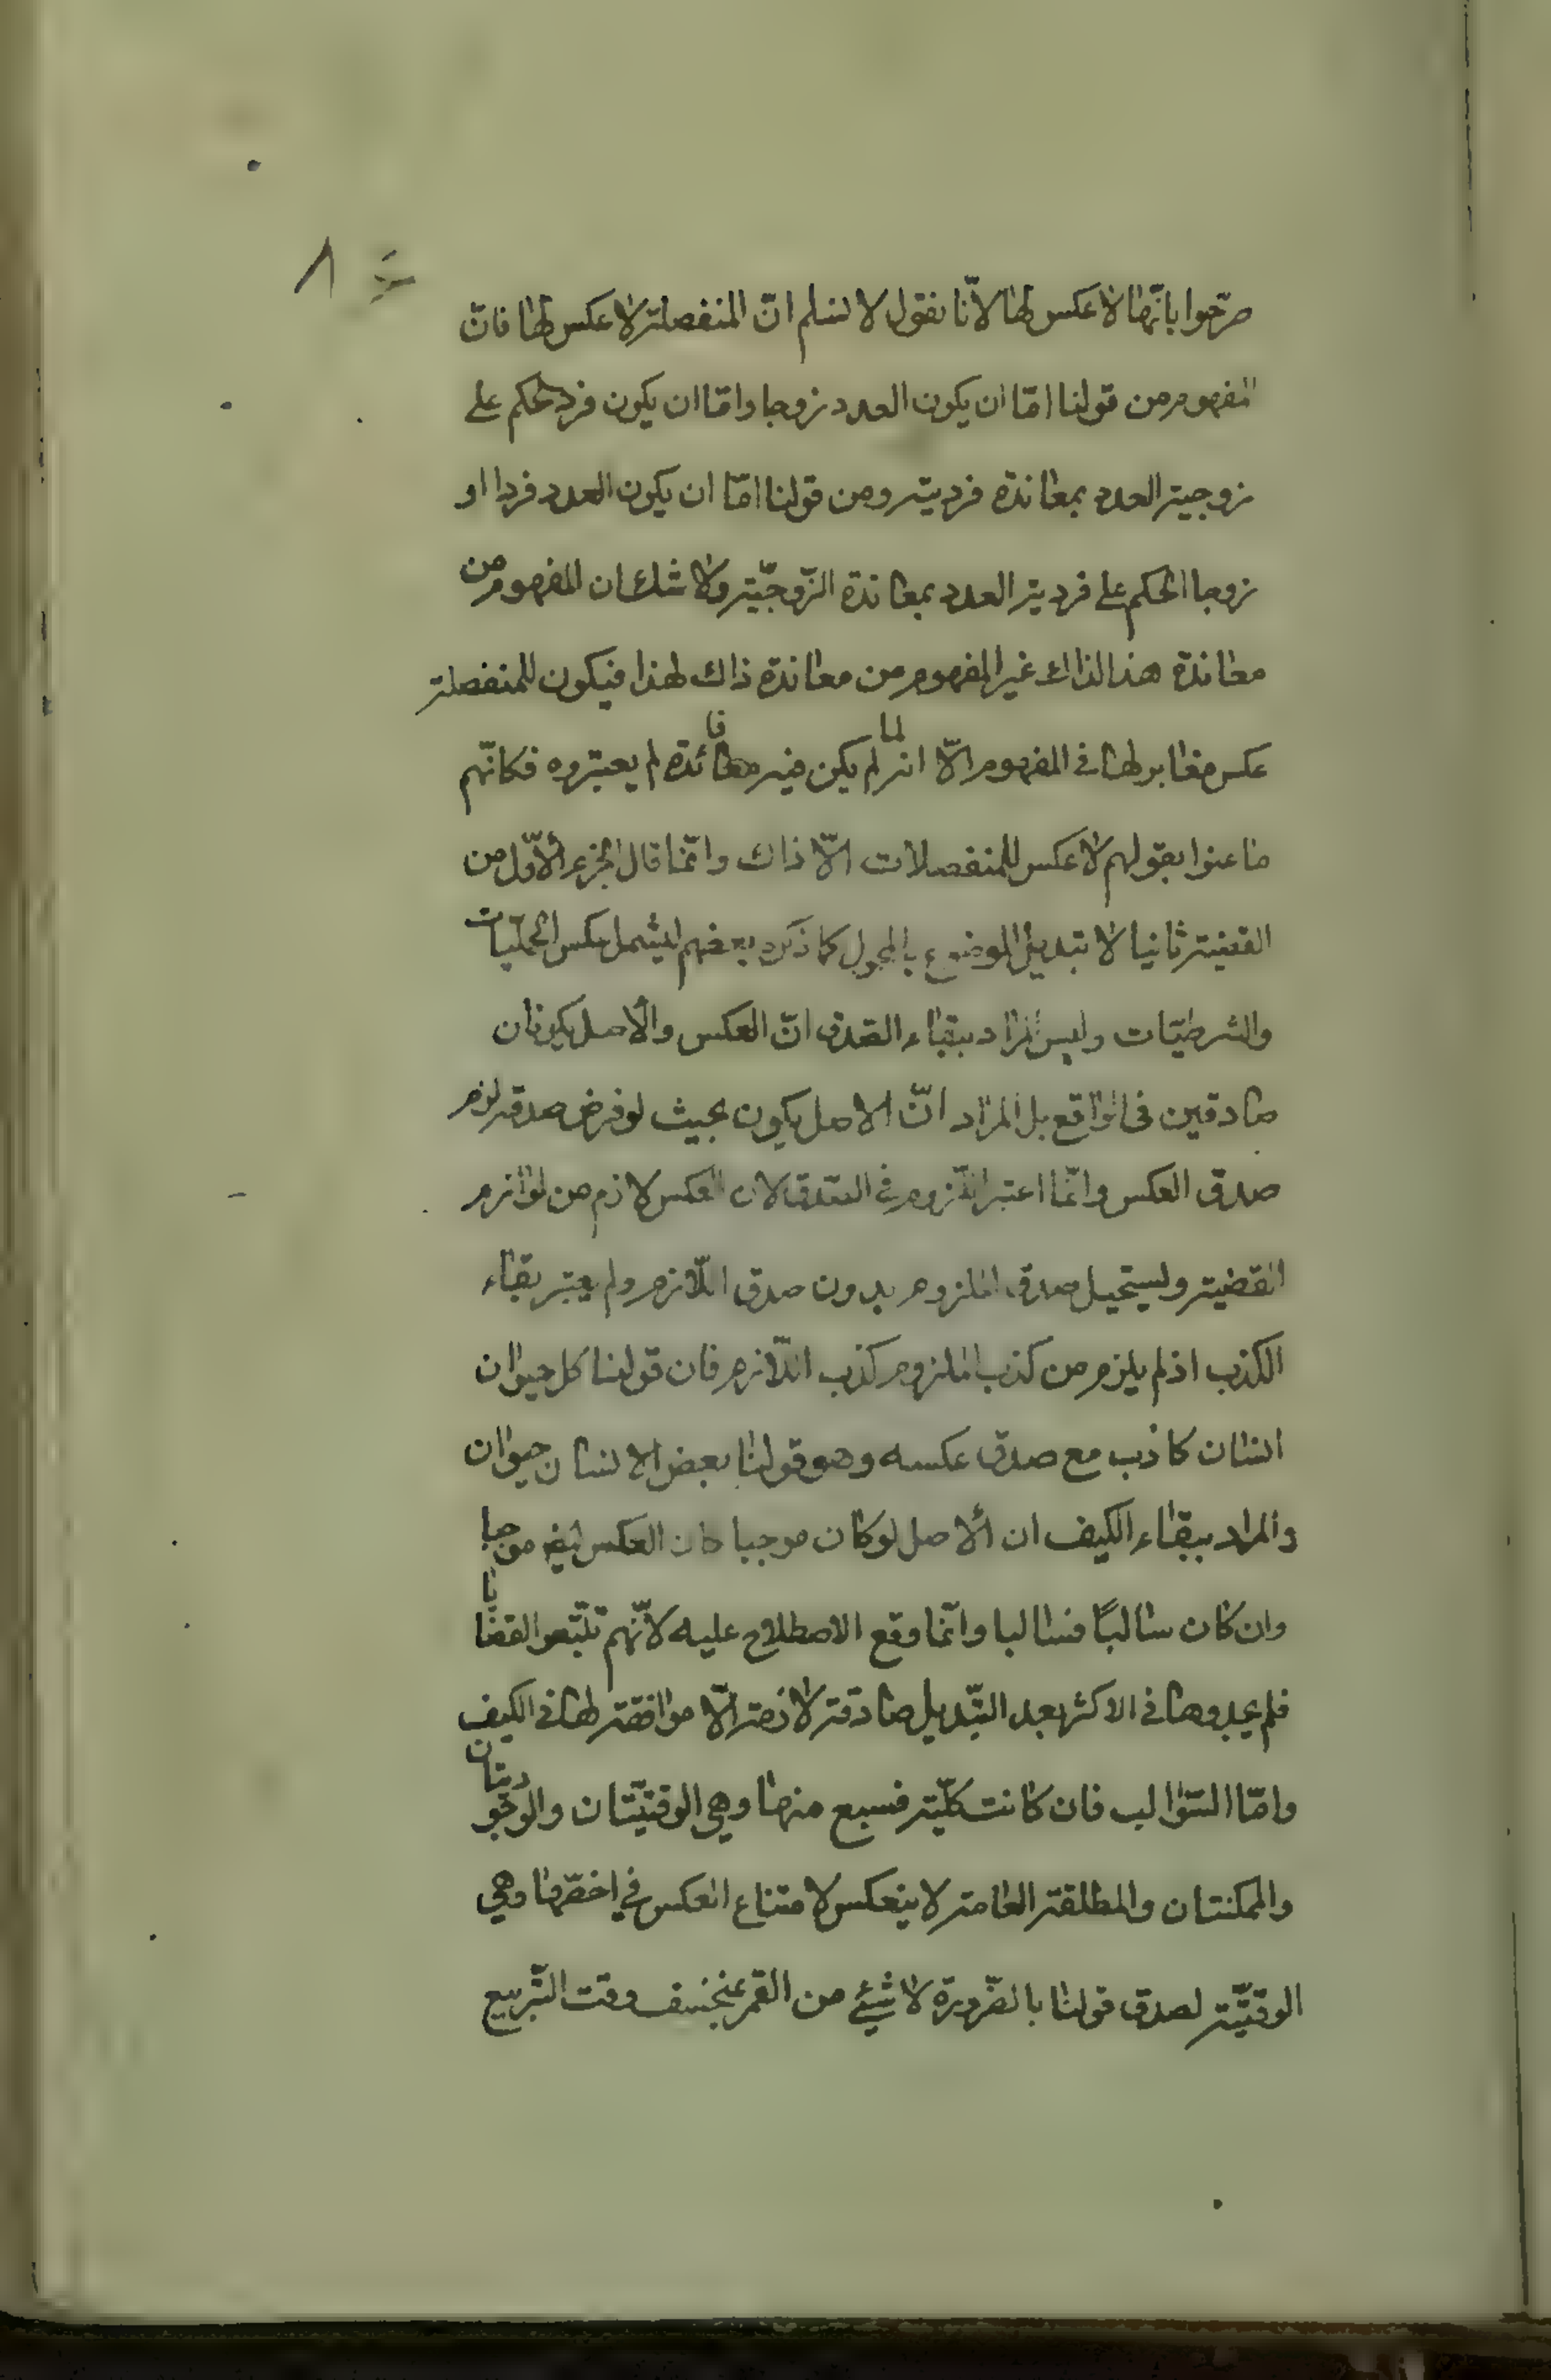 صرّحوا بانّها لا عكس لها لانّا نقول لا نسلم انّ المنفصلة لا عكس لها فانّ
المفهوم من قولنا امّا ان يكون العدد زوجا وامّا ان يكون فردا الحكم على
زوجية العدد بمعاندة فرديته ومن قولنا امّا ان يكون العدد فردا او
زوجا الحكم على فردية العدد بمعاندة الزّوجيّة ولا شك ان المفهوم من
معاندة هذا لذاك غير المفهوم من معاندة ذاك لهذا فيكون للمنفصلة
عكس مغاير لها فى المفهوم الّا انه لما لم يكن فيه فائدة لم يعتبروه فكانّهم
ما عنوا بقولهم لا عكس للمنفصلات الّا ذاك وانّما قال الجزء الأوّل من
القضية ثانيا لا تبديل الموضوع بالمحمول كما ذكره بعضهم ليشمل عكس الحمليّات
والشرطيّات وليس المراد ببقاء الصّدق انّ العكس والأصل يكونان
صادقين فى الواقع بل المراد انّ الاصل يكون بحيث لو فرض صدقه لزم
صدق العكس وانّما اعتبر اللّزوم فى الصّدق لان العكس لازم من لوازم
القضية ويستحيل صدق الملزوم بدون صدق اللّازم ولم يعتبر بقاء
الكذب اذ لم يلزم من كذب الملزوم كذب اللّازم فان قولنا كل حيوان
انسان كاذب مع صدق عكسه وهو قولنا بعض الانسان حيوان
والمراد ببقاء الكيف ان ألاصل لو كان موجبا كان العكس ايض موجبا
وان كان سالبًا فسالبا وانّما وقع الاصطلاح عليه لانّهم تتبّعوا القضايا
فلم يجدوها فى الاكثر بعد التّبديل صادقة لازمة الّا موافقة لها فى الكيف
وامّا السّوالب فان كانت كلّية فسبع منها وهي الوقتيّتان والوجوديتان
والممكنتان والمطلقة العامة لا ينعكس لامتناع العكس في اخصّها وهي
الوقتيّة لصدق قولنا بالضّرورة لا شيئ من القمر بمنخسف وقت التّربيع